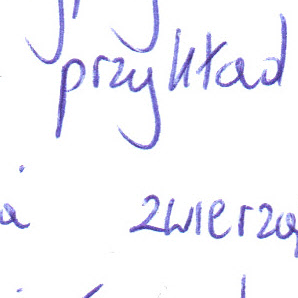 przykład
zwierzą